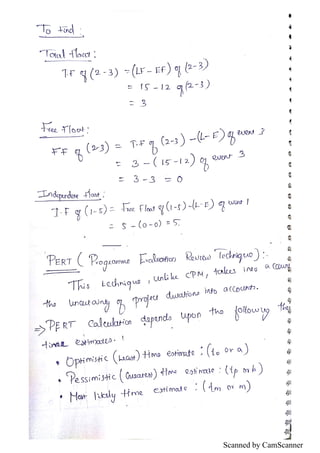 To find :
Total float :
T.F of (2-3) = (LF - EF) of (2-3)
= 15 - 12 of (2-3)
= 3
Free Float :
FF of (2-3) = T.F of (2-3) - (L-E) of event 3
= 3 - (15-12) of event 3
= 3 - 3 = 0
Independent float :
I.F of (1-5) = Free Float of (1-5) - (L-E) of event 1
= 5 - (0-0) = 5.
PERT ( Programme Evaluation Review Technique) :-
This technique, unlike CPM, takes into account
the uncertainty of project durations into account.
=> PERT Calculation depends upon the following three
time estimates. !
• Optimistic (Least) time estimate : (to or a)
• Pessimistic ( ) time estimate : (tp or b)
• Most likely time estimate : (tm or m)
Scanned by CamScanner